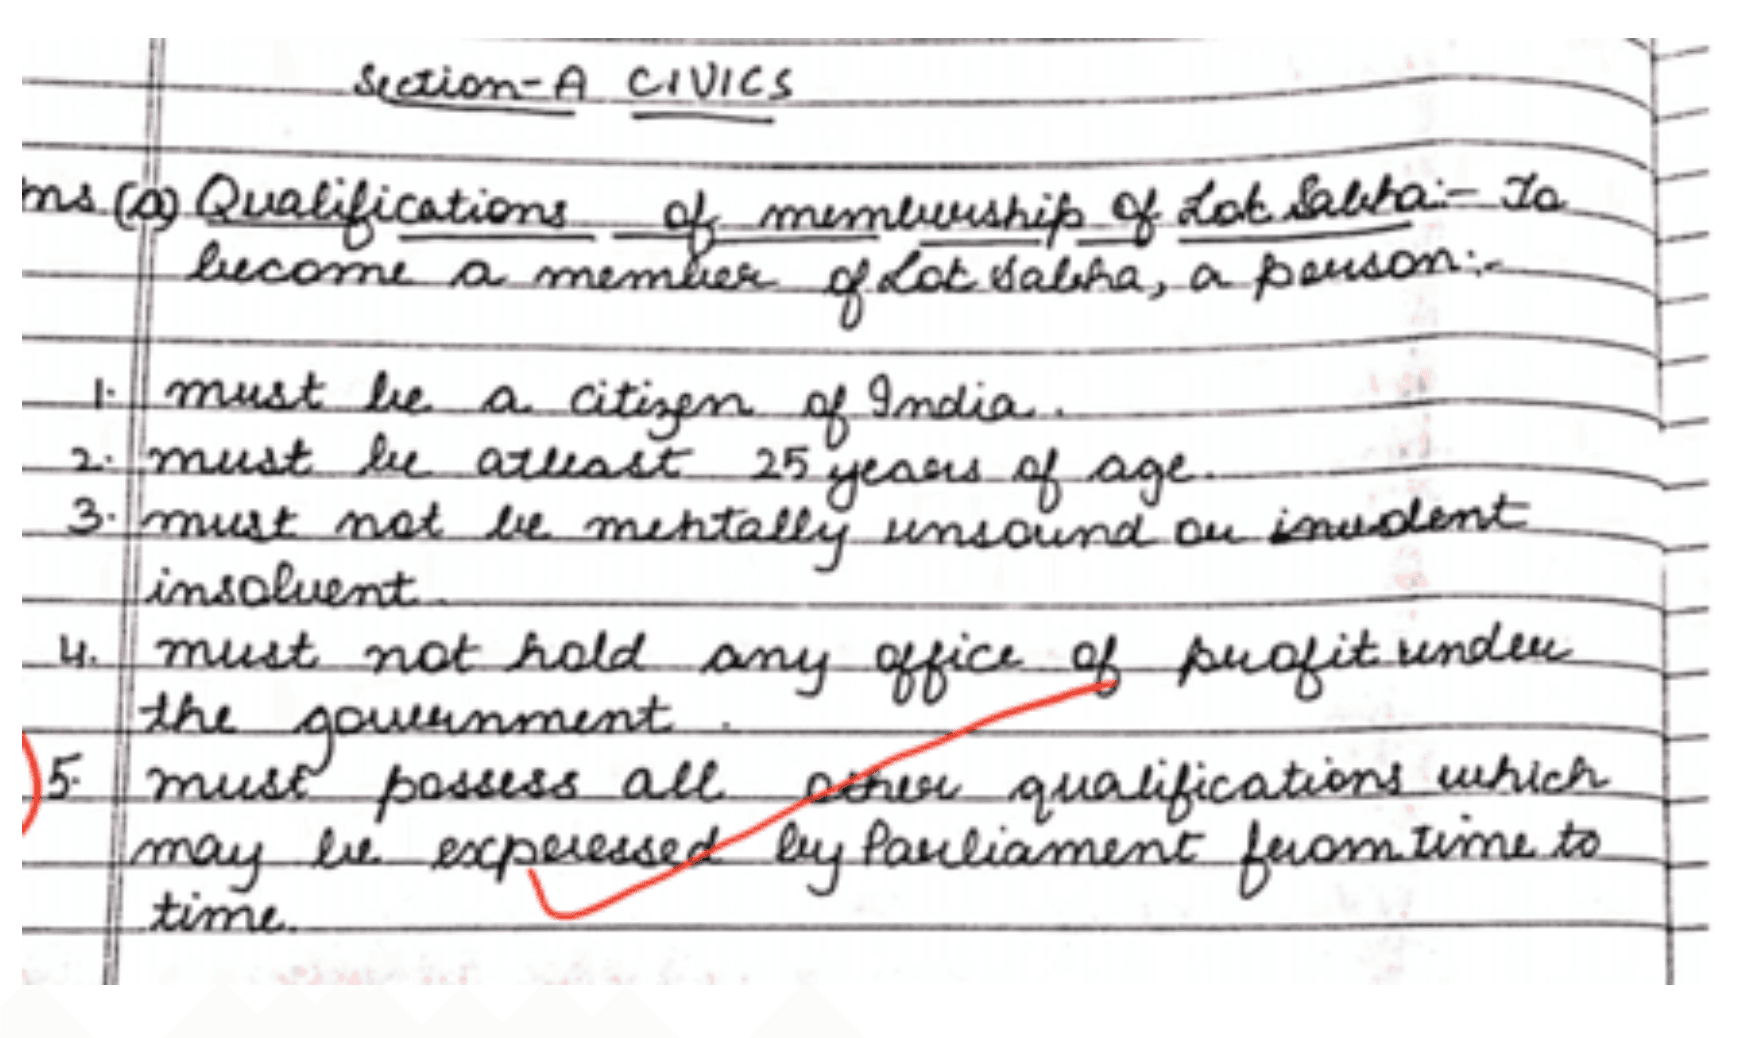 Section-A CIVICS
ns (a) Qualifications of membership of Lok Sabha:- To
become a member of Lok Sabha, a person:-
1. must be a citizen of India.
2. must be atleast 25 years of age.
3. must not be mentally unsound or
insolvent.
4. must not hold any office of profit under
the government.
5. must possess all other qualifications which
may be experessed by Parliament from time to
time.